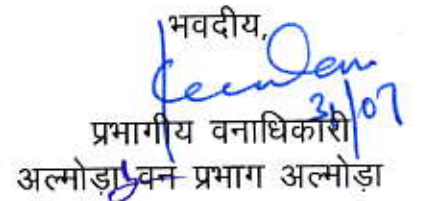 भवदीय,
31/07
प्रभागीय वनाधिकारी
अल्मोड़ा वन प्रभाग अल्मोड़ा